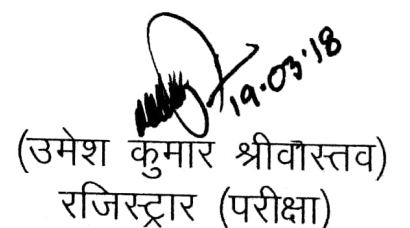 19.03.18
(उमेश कुमार श्रीवास्तव)
रजिस्ट्रार (परीक्षा)